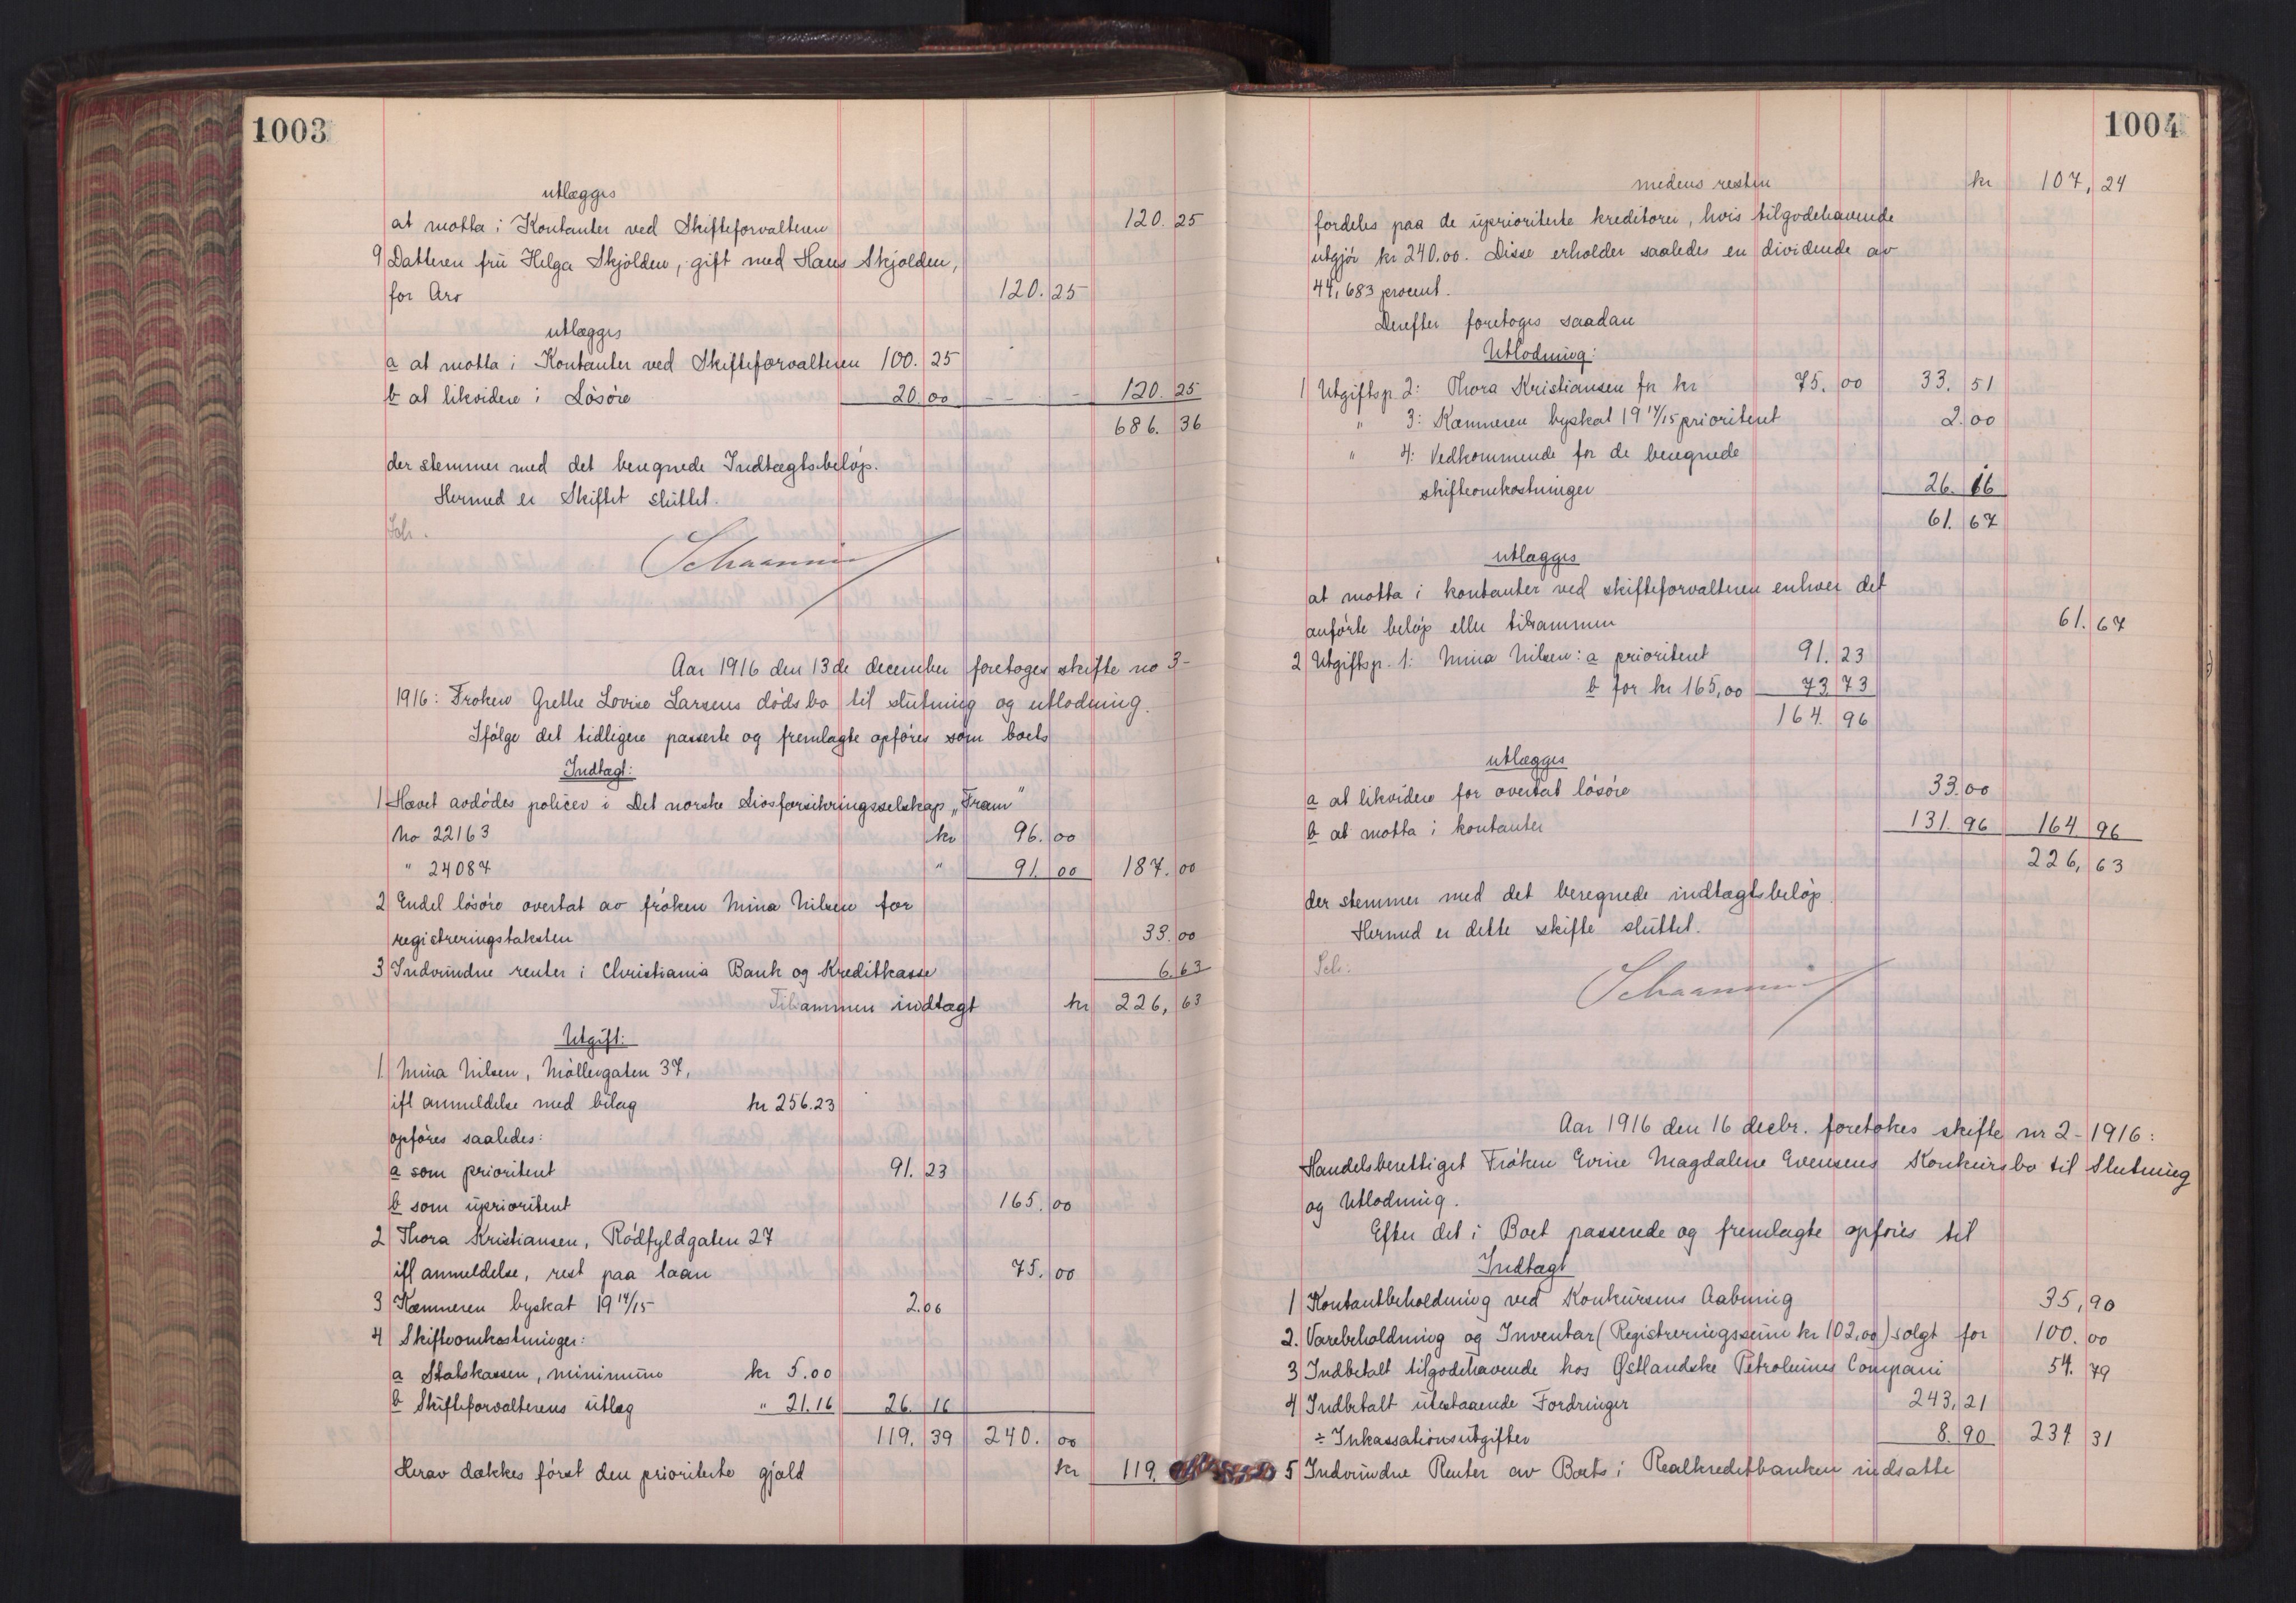 1003
utlægges
at motta i Kontanter ved Skifteforvalteren 120. 25
9 Datteren fru Helga Skjolden, gift med Hans Skjolden,
for Arv 120. 25
utlægges
a at motta i Kontanter ved Skifteforvalteren 100. 25
b at likvidere i Løsøre 20 00 - - - 120. 25
686. 36
der stemmer med det beregnede Indtægtsbeløp.
Hermed er Skiftet sluttet.
Sch.
Schaanning
Aar 1916 den 13de december foretoges skifte no 3-
1916: Frøken Grethe Lovise Larsens dødsbo til slutning og utlodning.
Ifølge det tidligere passerte og fremlagte opføres som boets
Indtægt:
1 Hævet avdødes policer i Det norske Livsforsikringsselskap „Fram"
No 22163 kr 96. 00
" 24087 " 91. 00 187. 00
2 Endel løsøre overtat av frøken Mina Nilsen for
registreringstaksten 33. 00
3 Indvundne renter i Christiania Bank og Kreditkasse 6. 63
Tilsammen indtægt kr 226, 63
Utgift:
1 Mina Nilsen, Møllergaten 37,
ifl anmeldelse med bilag kr 256.23
opføres saaledes:
a som prioritert 91. 23
b som uprioritert 165. 00
2 Thora Kristiansen, Rødfyldgaten 27
ifl anmeldelse, rest paa laan 75. 00
3 Kæmneren byskat 19 14/15 2. 00
4 Skifteomkostninger:
a Statskassen, minimum kr 5.00
b Skifteforvalterens utlæg " 21.16 26. 16
119. 39 240. 00
Herav dækkes først den prioriterte gjæld kr 119.
1004
medens resten kr 107, 24
fordeles paa de uprioriterte kreditorer, hvis tilgodehavende
utgjør kr 240.00. Disse erholder saaledes en dividende av
44,683 procent.
Derefter foretoges saadan
Utlodning:
1 Utgiftsp. 2: Thora Kristiansen for kr 75. 00 33. 51
" 3: Kæmneren byskat 19 14/15 prioritert 2. 00
" 4: Vedkommende for de beregnede
skifteomkostninger 26. 16
61. 67
utlægges
at motta i kontanter ved skifteforvalteren enhver det
anførte beløp eller tilsammen 61. 67
2 Utgiftsp. 1: Mina Nilsen: a prioritert 91. 23
b for kr 165,00 73 73
164. 96
utlægges
a at likvidere for overtat løsøre 33. 00
b at motta i kontanter 131. 96 164 96
226, 63
der stemmer med det beregnede indtægtsbeløp.
Hermed er dette skifte sluttet.
Sch:
Schaanning
Aar 1916 den 16 decbr. foretokes skifte nr 2-1916:
Handelsberettiget Frøken Evine Magdalene Evensens Konkursbo til Slutning
og Utlodning.
Efter det i Boet passerede og fremlagte opføres til
Indtægt
1 Kontantbeholdning ved Konkursens Aabning 35, 90
2. Varebeholdning og Inventar (Registreringssum kr 102,00) solgt for 100. 00
3 Indbetalt tilgodehavende hos Østlandske Petroleums Compani 54. 79
4 Indbetalt utestaaende Fordringer 243, 21
÷ Inkassationsutgifter 8. 90 234 31
5 Indvundne Renter av Boets i Realkreditbanken indsatte